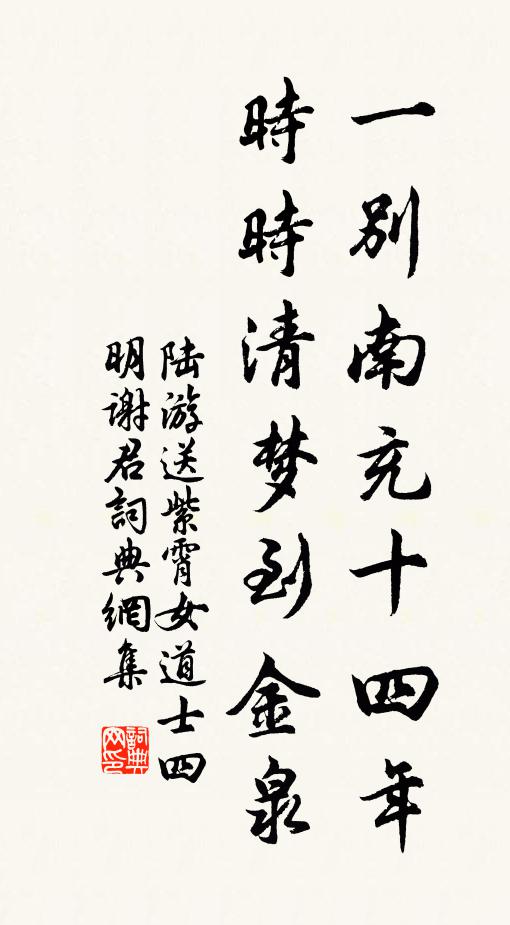 一別南充十四年
時時清梦到金泉
陸游送紫霄女道士四
明謝君詞典網集
詞典
网印